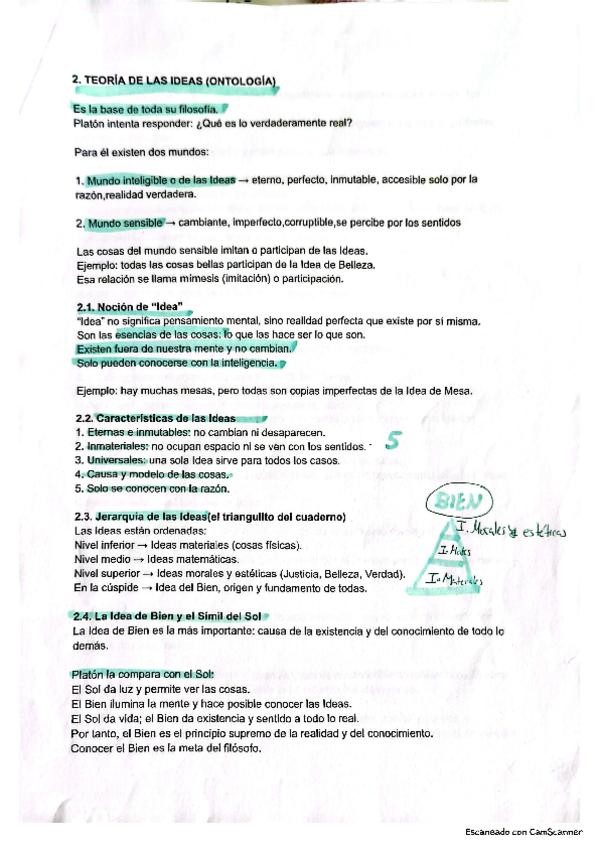 2. TEORÍA DE LAS IDEAS (ONTOLOGÍA)
Es la base de toda su filosofía.
Platón intenta responder: ¿Qué es lo verdaderamente real?
Para él existen dos mundos:
1. Mundo inteligible o de las Ideas → eterno, perfecto, inmutable, accesible solo por la
razón,realidad verdadera.
2. Mundo sensible → cambiante, imperfecto,corruptible,se percibe por los sentidos
Las cosas del mundo sensible imitan o participan de las Ideas.
Ejemplo: todas las cosas bellas participan de la Idea de Belleza.
Esa relación se llama mimesis (imitación) o participación.
2.1. Noción de "Idea"
"Idea" no significa pensamiento mental, sino realidad perfecta que existe por sí misma.
Son las esencias de las cosas: lo que las hace ser lo que son.
Existen fuera de nuestra mente y no cambian.
Solo pueden conocerse con la inteligencia.
Ejemplo: hay muchas mesas, pero todas son copias imperfectas de la Idea de Mesa.
2.2. Características de las Ideas
1. Eternas e inmutables: no cambian ni desaparecen.
2. Inmateriales: no ocupan espacio ni se ven con los sentidos.
3. Universales: una sola Idea sirve para todos los casos.
4. Causa y modelo de las cosas.
5. Solo se conocen con la razón.
5
2.3. Jerarquía de las Ideas(el triangulito del cuaderno)
Las Ideas están ordenadas:
Nivel inferior → Ideas materiales (cosas físicas).
Nivel medio → Ideas matemáticas.
Nivel superior → Ideas morales y estéticas (Justicia, Belleza, Verdad).
En la cúspide → Idea del Bien, origen y fundamento de todas.
BIEN
I. Morales y estéticas
I. Mates
I. Materiales
2.4. La Idea de Bien y el Símil del Sol
La Idea de Bien es la más importante: causa de la existencia y del conocimiento de todo lo
demás.
Platón la compara con el Sol:
El Sol da luz y permite ver las cosas.
El Bien ilumina la mente y hace posible conocer las Ideas.
El Sol da vida; el Bien da existencia y sentido a todo lo real.
Por tanto, el Bien es el principio supremo de la realidad y del conocimiento.
Conocer el Bien es la meta del filósofo.
Escaneado con CamScanner